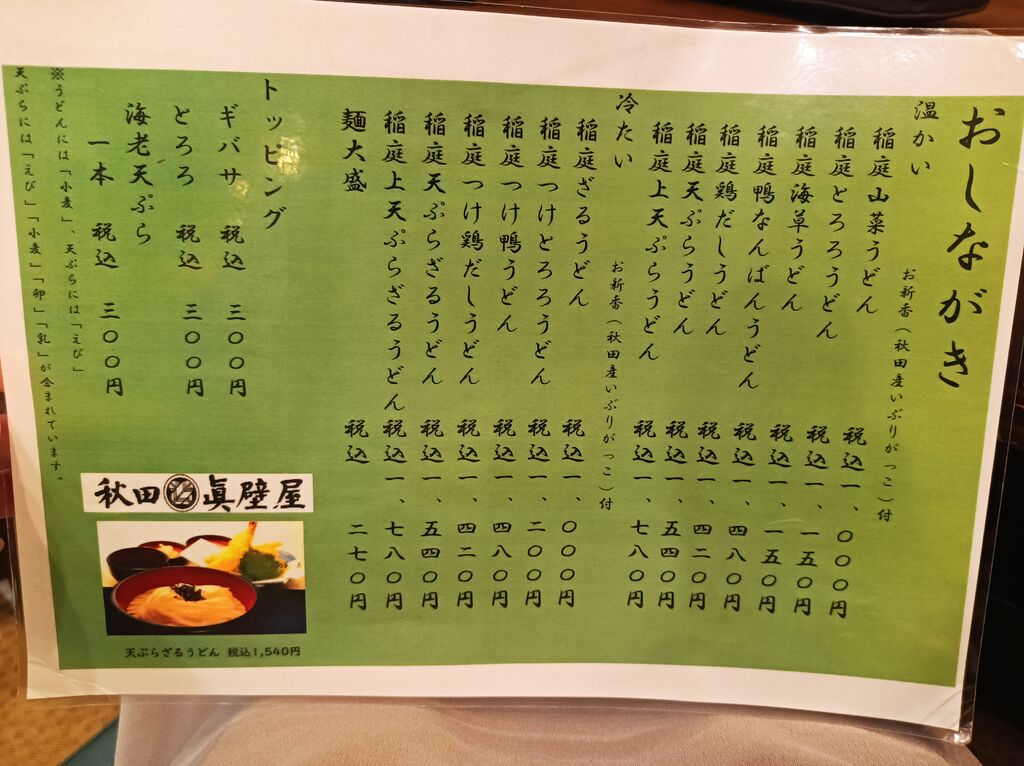 おしながき
温かい
お新香（秋田産いぶりがっこ）付
稲庭山菜うどん 税込一、〇〇〇円
稲庭とろろうどん 税込一、一五〇円
稲庭海草うどん 税込一、一五〇円
稲庭鴨なんばんうどん 税込一、四八〇円
稲庭鶏だしうどん 税込一、四二〇円
稲庭天ぷらうどん 税込一、五四〇円
稲庭上天ぷらうどん 税込一、七八〇円
冷たい
お新香（秋田産いぶりがっこ）付
稲庭ざるうどん 税込一、〇〇〇円
稲庭つけとろろうどん 税込一、二〇〇円
稲庭つけ鴨うどん 税込一、四八〇円
稲庭つけ鶏だしうどん 税込一、四二〇円
稲庭天ぷらざるうどん 税込一、五四〇円
稲庭上天ぷらざるうどん 税込一、七八〇円
麺大盛 税込 二七〇円
トッピング
ギバサ 税込 三〇〇円
とろろ 税込 三〇〇円
海老天ぷら
一本 税込 三〇〇円
※うどんには「小麦」、天ぷらには「えび」
天ぷらには「えび」「小麦」「卵」「乳」が含まれています。
秋田 眞壁屋
天ぷらざるうどん 税込1,540円